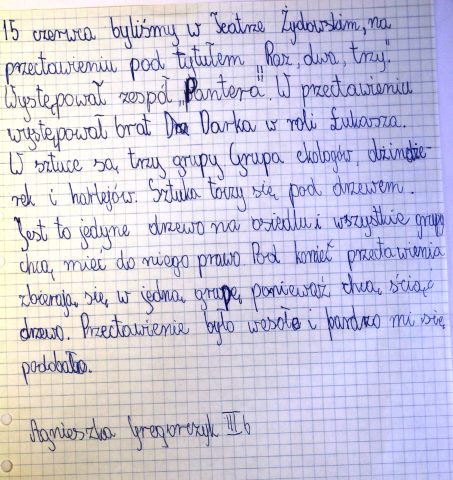 15 czerwca byliśmy w Teatrze Żydowskim, na
przectawieniu pod tytułem „Raz, dwa, trzy".
Występował zespół „Pantera". W przectawieniu
występował brat Darka w roli Łukasza.
W sztuce są trzy grupy Grupa ekologów, dżinksie-
rek i haklejów. Sztuka toczy się pod drzewem.
Jest to jedyne drzewo na osiedlu i wszystkie grupy
chcą mieć do niego prawo. Pod konieć przectawienia
zbierają się w jedną grupę ponieważ chcą ściąć
drzewo. Przectawienie było wesołe i pardzo mi się
podobało.
Agnieszka Gregorczyk III b